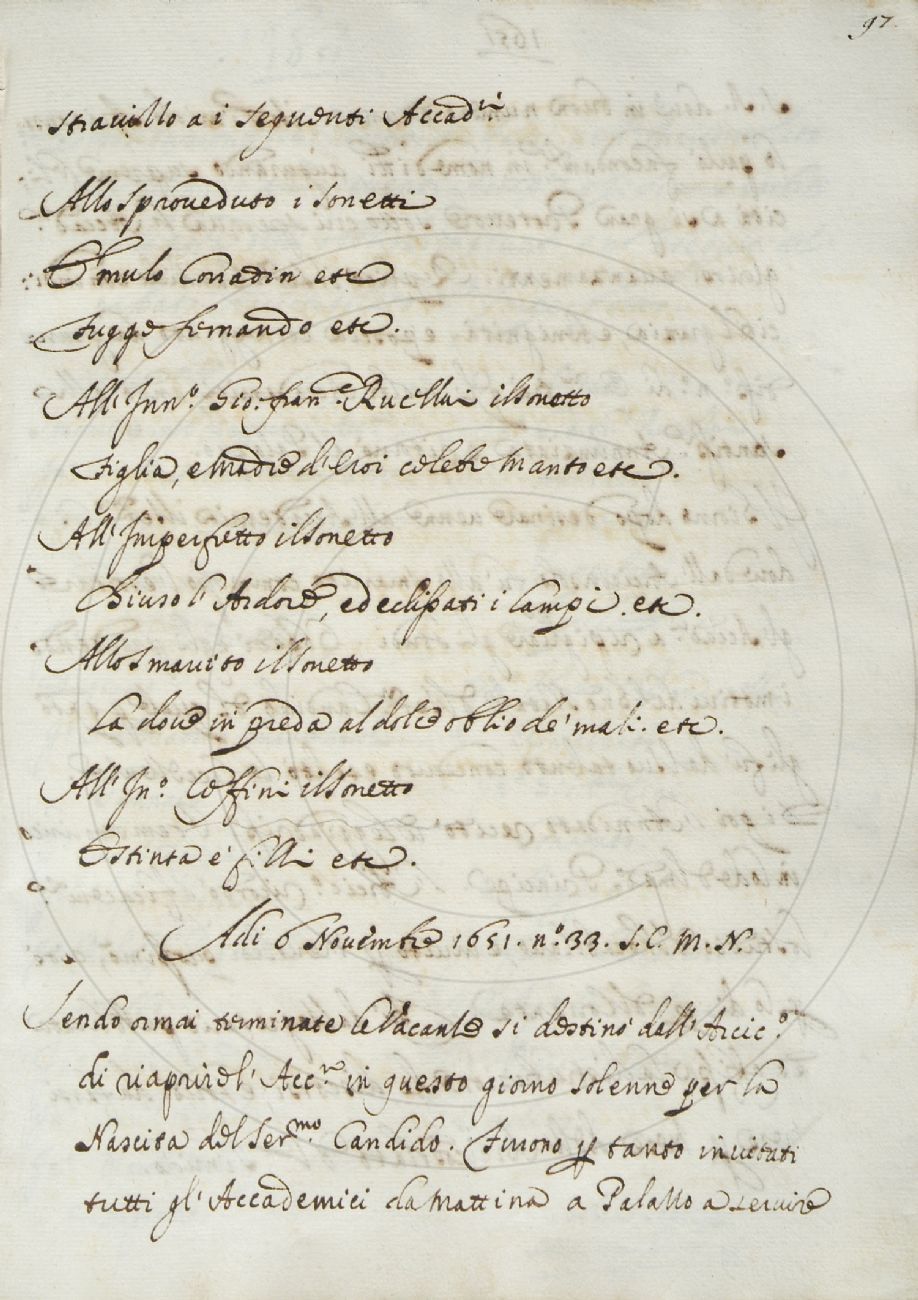 97.
stravizzo a i seguenti Accad.ci
Allo sproveduto i sonetti
Emulo Corradin etc
fugge fernando etc.
All' Inn.º Gio: fran.º Rucellai il sonetto
figlia, e Madre d'Eroi celebre Manto etc.
All' Imperfetto il sonetto
Chiuso l' Ardore, ed eclissati i lampi. etc.
Allo Smarrito il sonetto
La dove in preda al dolce oblio de' mali. etc.
All' In.º Coffini il sonetto
Estinta è filli etc.
Adi 6 Novembre 1651. nº. 33. S. C. M. N.
Sendo ormai terminate le Vacanze si destinò dall' Arcic.º
di riaprire l' Acc.ª in questo giorno solenne per la
Nascita del Ser.mo Candido. furono p tanto invitati
tutti gl' Accademici la Mattina a Palazzo a servire